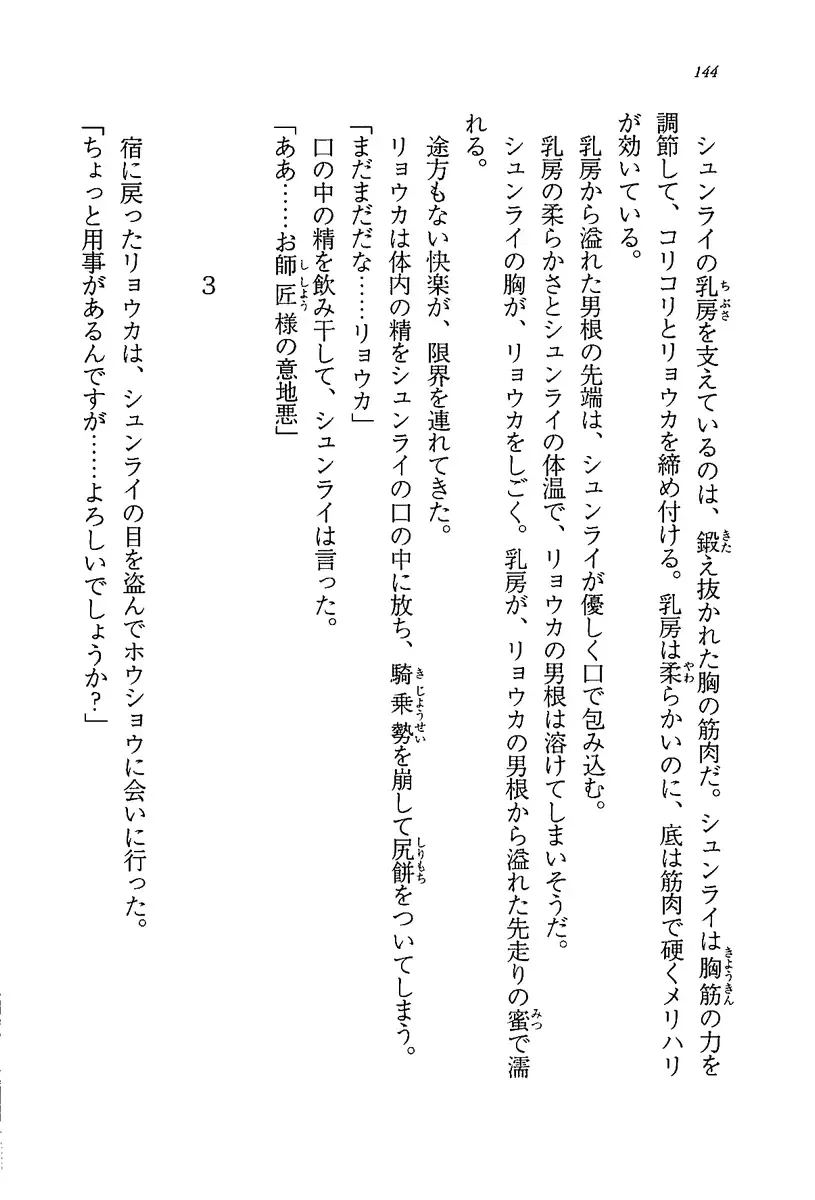 144
シュンライの乳房を支えているのは、鍛え抜かれた胸の筋肉だ。シュンライは胸筋の力を
調節して、コリコリとリョウカを締め付ける。乳房は柔らかいのに、底は筋肉で硬くメリハリ
が効いている。
乳房から溢れた男根の先端は、シュンライが優しく口で包み込む。
乳房の柔らかさとシュンライの体温で、リョウカの男根は溶けてしまいそうだ。
シュンライの胸が、リョウカをしごく。乳房が、リョウカの男根から溢れた先走りの蜜で濡
れる。
途方もない快楽が、限界を連れてきた。
リョウカは体内の精をシュンライの口の中に放ち、騎乗勢を崩して尻餅をついてしまう。
「まだまだだな……リョウカ」
口の中の精を飲み干して、シュンライは言った。
「ああ……お師匠様の意地悪」
3
宿に戻ったリョウカは、シュンライの目を盗んでホウショウに会いに行った。
「ちょっと用事があるんですが……よろしいでしょうか?」